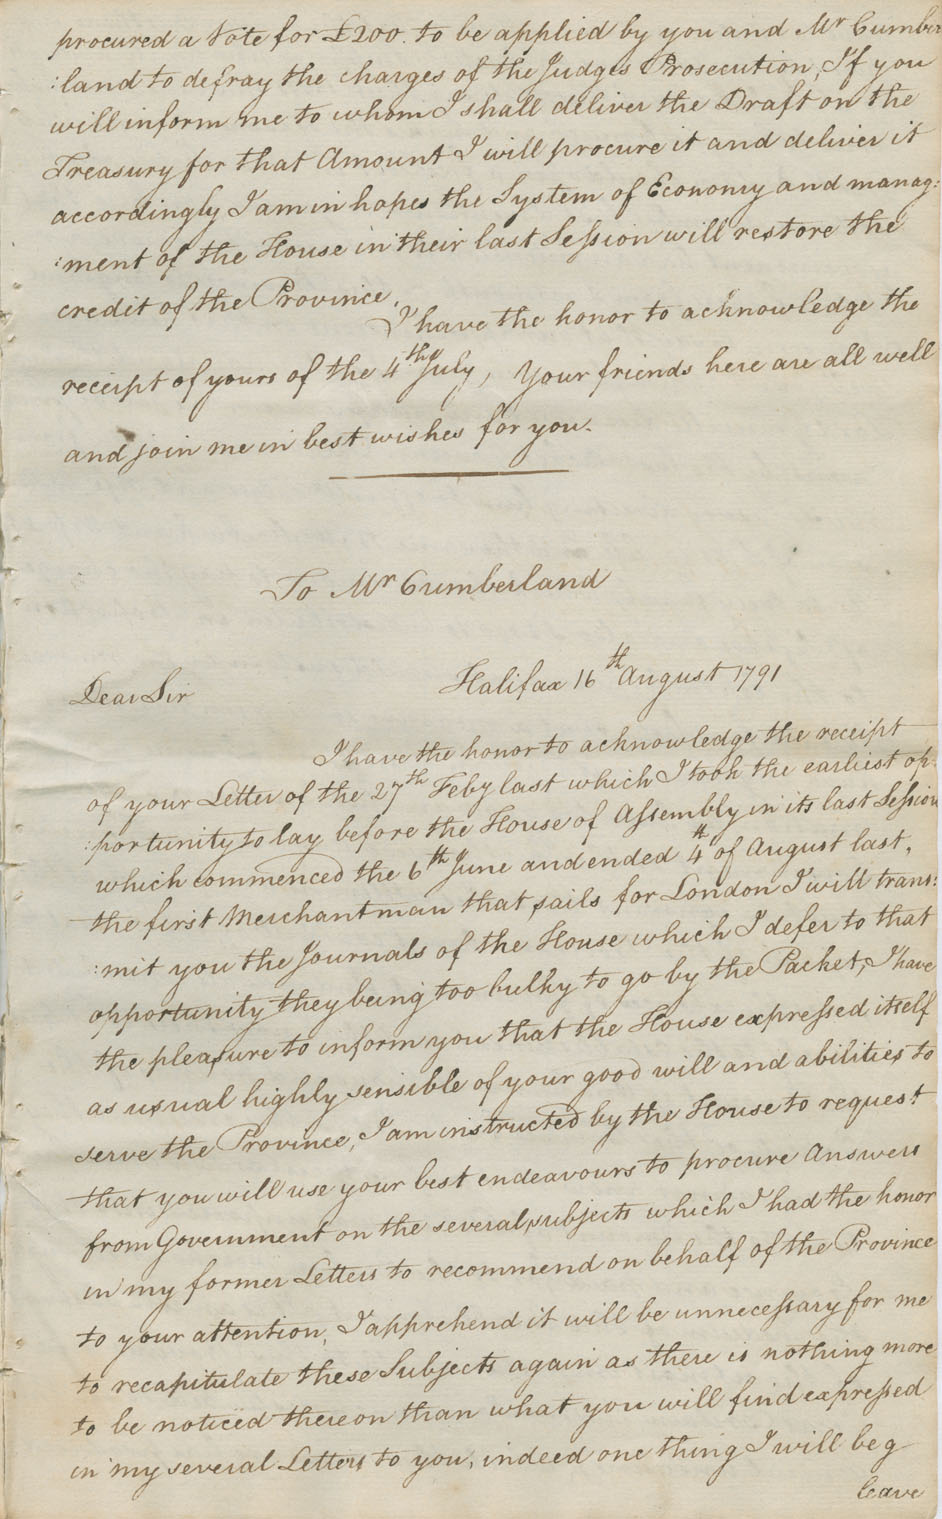 procured a Vote for £200. to be applied by you and Mr Cumber
:land to defray the charges of the Judges Prosecution, If you
will inform me to whom I shall deliver the Draft on the
Treasury for that Amount I will procure it and deliver it
accordingly I am in hopes the System of Economy and manag:
:ment of the House in their last Session will restore the
credit of the Province.
I have the honor to acknowledge the
receipt of yours of the 4th July, Your friends here are all well
and join me in best wishes for you.
To Mr Cumberland
Halifax 16th August 1791
Dear Sir
I have the honor to acknowledge the receipt
of your Letter of the 27th Feby last which I took the earliest op:
:portunity to lay before the House of Assembly in its last Session
which commenced the 6th June and ended 4th of August last,
the first Merchantman that sails for London I will trans:
:mit you the Journals of the House which I defer to that
opportunity they being too bulky to go by the Packet, I have
the pleasure to inform you that the House expressed itself
as usual highly sensible of your good will and abilities to
serve the Province, I am instructed by the House to request
that you will use your best endeavours to procure Answers
from Government on the several subjects which I had the honor
in my former Letters to recommend on behalf of the Province
to your attention, I apprehend it will be unnecessary for me
to recapitulate these Subjects again as there is nothing more
to be noticed thereon than what you will find expressed
in my several Letters to you, indeed one thing I will beg
leave